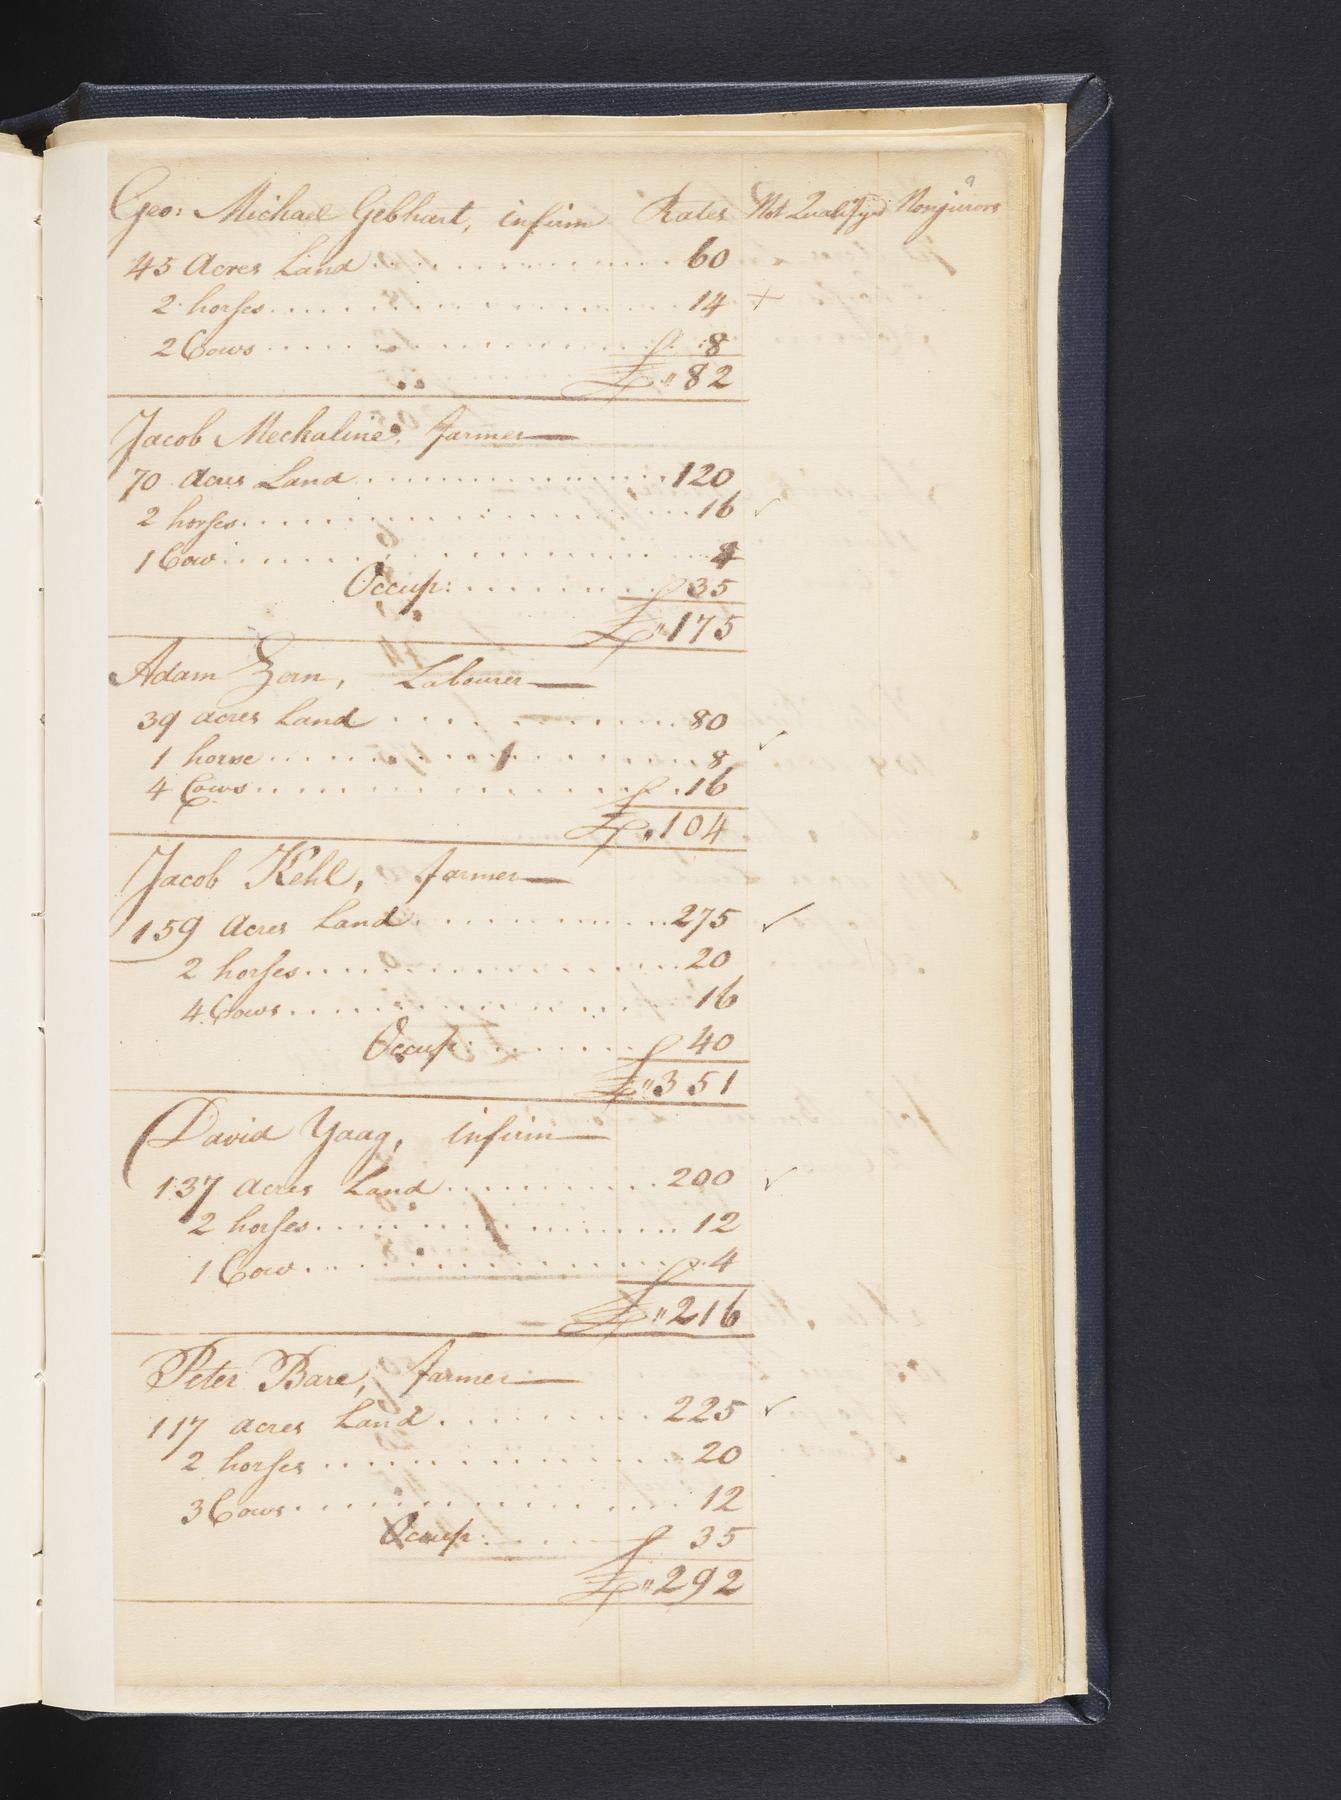 9
Geo: Michael Gebhart, infirm Rates Not Qualifyed Nonjurors
45 Acres Land 60
2 horses 14 +
2 Cows 8
£ 82
Jacob Mechaline, farmer
70 Acres Land 120
2 horses 16 ✓
1 Cow 4
Occup: 35
£ 175
Adam Zorn, Labourer
39 acres Land 80
1 horse 8 ✓
4 Cows 16
£ 104
Jacob Kehl, farmer
159 Acres Land 275 ✓
2 horses 20
4 Cows 16
Occup: 40
£ 351
David Yaag, infirm
137 Acres Land 200 ✓
2 horses 12
1 Cow 4
£ 216
Peter Bare, farmer
117 acres Land 225 ✓
2 horses 20
3 Cows 12
Occup: 35
£ 292